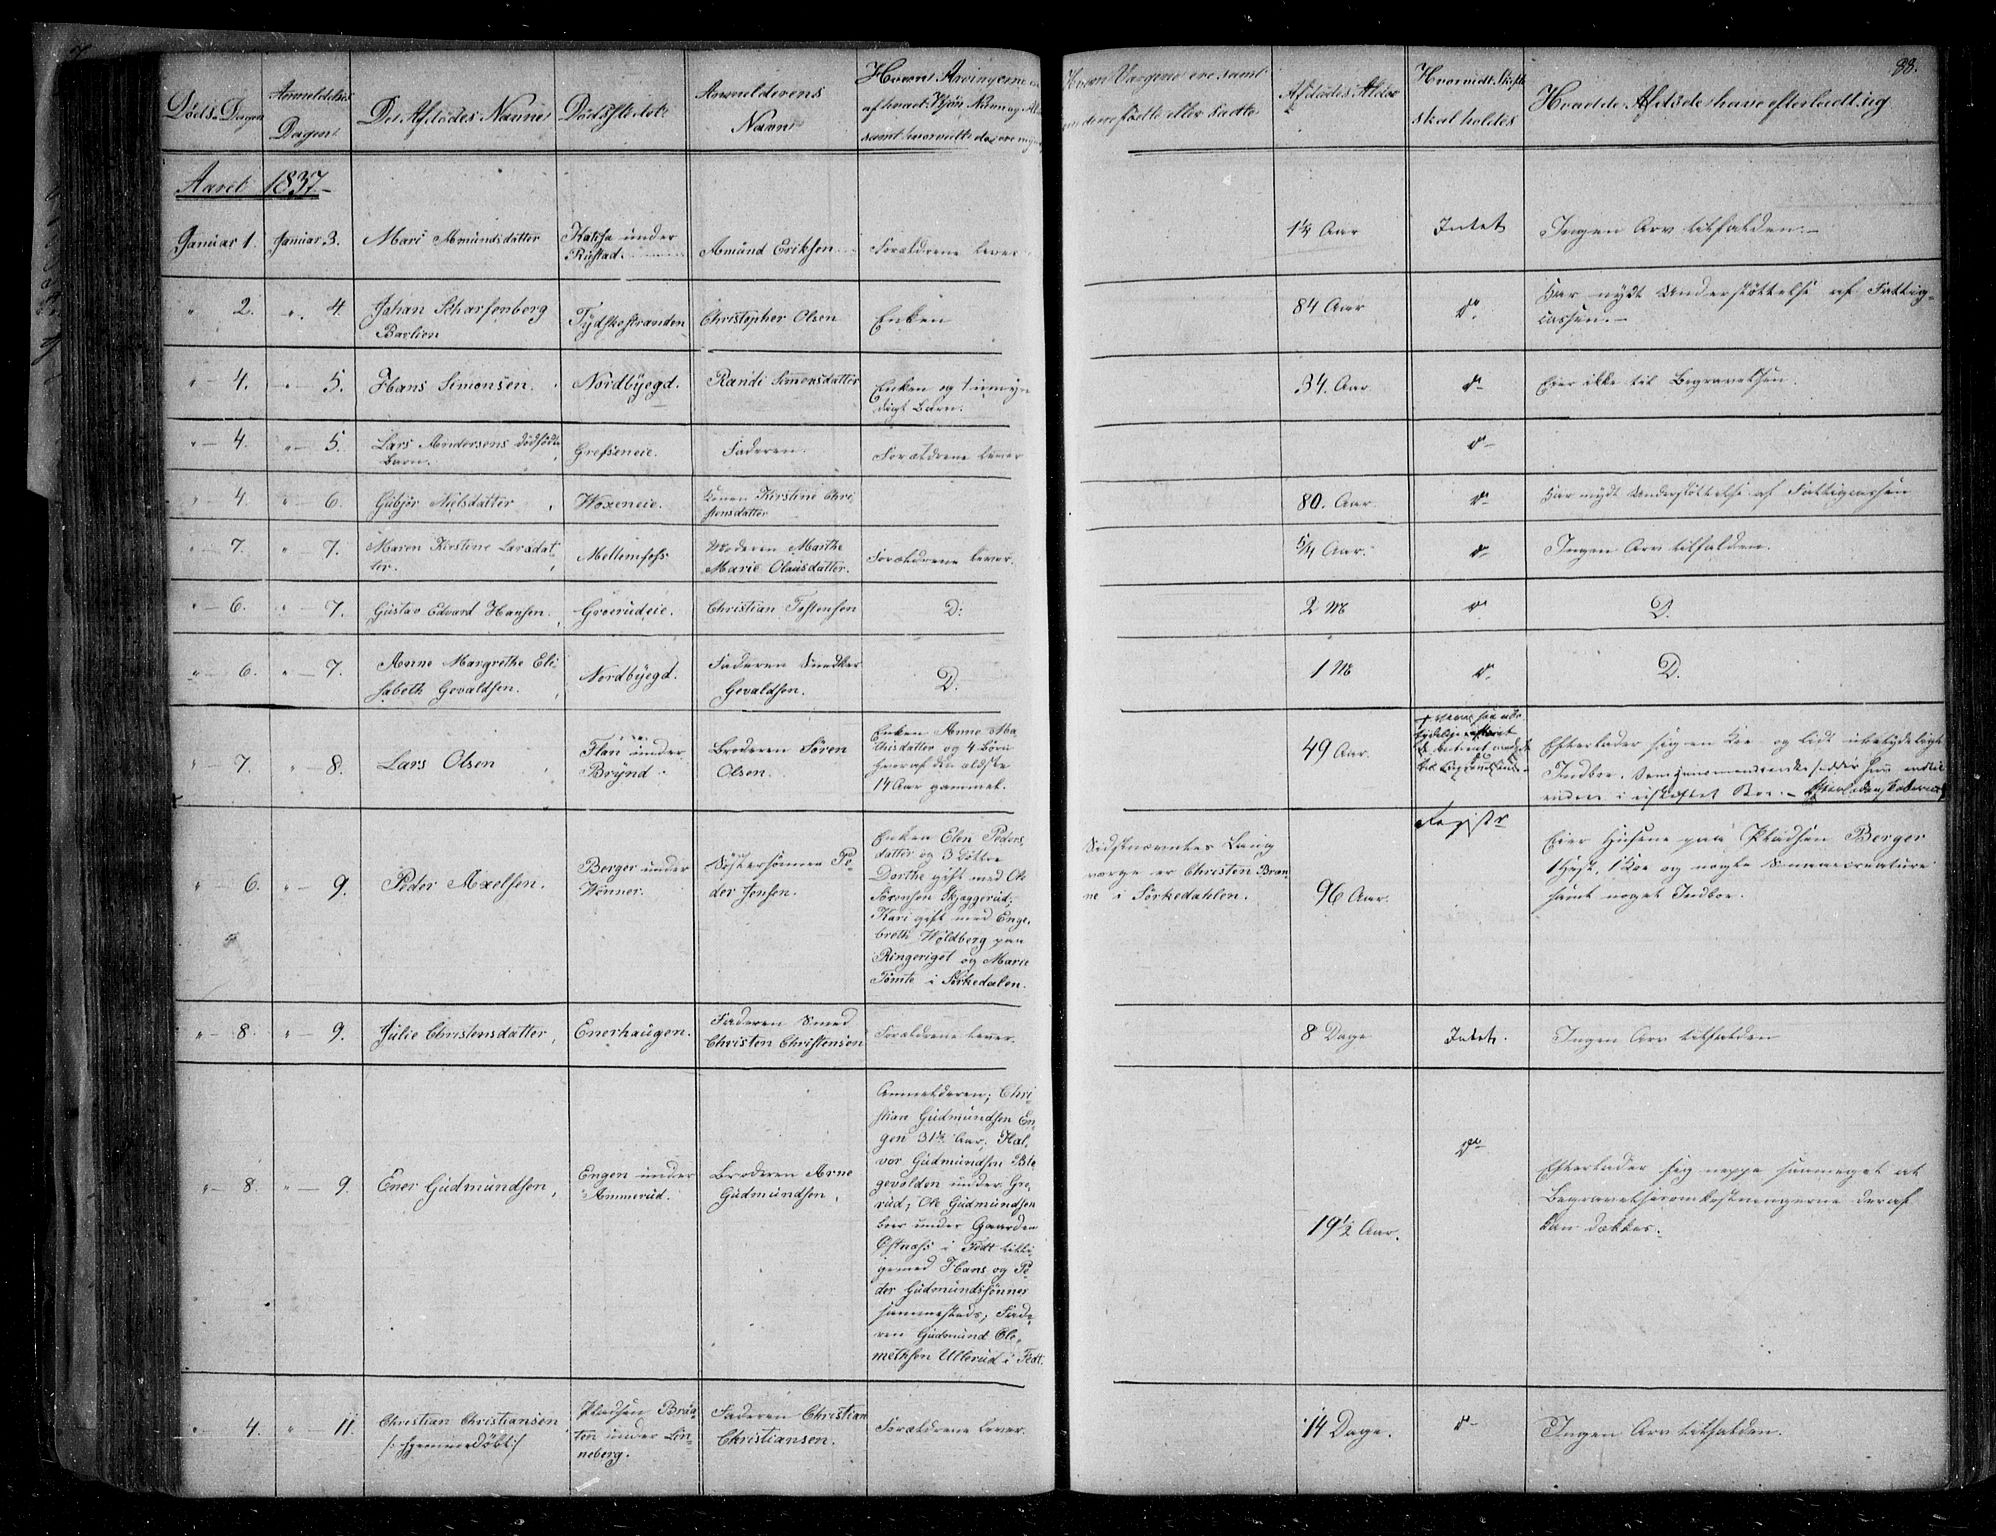 88.
Døds-Dagen
Anmeldelses Dagen
Den Afdødes Navne
Dødsstedet
Anmelderens Navn
Hvem Arvingerne ere
af hvad Kjøn, Navn og Alder
samt hvorvidt de ere myndige
Hvem Værgerne ere samt
om de ere fødte eller satte
Afdødes Alder
Hvorvidt Skifte
skal holdes
Hvad de Afdøde have efterladt sig
Aaret 1837
Januar 1. Januar 3. Mari Amundsdatter
Kassa under
Rustad.
Amund Eriksen
Forældrene lever
1¼ Aar
Intet
Ingen Arv tilfalden.
" 2. " 4. Johan Scharfenberg
Bartlien
Tydskestranden
Christopher Olsen
Enken
84 Aar
do
Har nydt Understøttelse af Fattig-
cassen.
" 4. " 5. Hans Simonsen.
Nordbyegd.
Randi Simensdatter
Enken og 1 umyn
digt Barn.
34. Aar.
do
Eier ikke til Begravelsen.
" 4. " 5. Lars Andersens dødfødte
Barn.
Grefseneie.
Faderen.
Forældrene lever
do
" 4. " 6. Gubjør Nielsdatter
Woxeneie.
Konen Kirstine Chri
stensdatter
80. Aar.
do
Har nydt Understøttelse af Fattigcassen
" 7. " 7. Maren Kirstine Larsdat
ter.
Mellemfoss
Moderen Marthe
Marie Olausdatter.
Forældrene lever.
5/4 Aar.
do
Ingen Arv tilfalden.
" 6. " 7. Gustav Edvard Hansen.
Groerudeie.
Christian Tostensen
D:
2 M
do
D.
" 6. " 7. Anne Margrethe Eli
sabeth Gevaldsen.
Nordbyegd.
Faderen Snedker
Gevaldsen.
D.
1 M
do
D.
" 7. " 8. Lars Olsen
Flan under
Brynd
Broderen Sören
Olsen.
Enken Anne Ma
thisdatter og 4 Børn
hvoraf den ældste
14 Aar gammel.
49 Aar.
Efterlader sig en Koe og lidt ubetydeligt
Indboe.
i uskiftet Boe.
" 6. " 9. Peder Axelsen.
Berger under
Wønner.
Søstersönnen Pe
der Jensen.
Enken Elen Peders
datter og 3 Døttre
Dorthe gift med Ole
Sørensen Skjæggerud;
Kari gift med Enge
breth Woldberg paa
Ringeriget og Marie
Tomte i Sørkedalen.
Sidstnævntes Laug
værge er Christen Bræn
ne i Sørkedahlen.
96 Aar.
Registr
Eier Husene paa Pladsen Berger
1 Hest, 1 Koe og nogle Smaacreature
samt noget Indboe.
" 8. " 9. Julie Christensdatter
Enerhaugen.
Faderen Smed
Christen Christensen
Forældrene lever.
8 Dage
Intet.
Ingen Arv tilfalden
" 8. " 9. Ener Gudmundsen
Engen under
Ammerud.
Broderen Arne
Gudmundsen
Anmelderen; Chri-
stian Gudmundsen En-
gen 31½ Aar. Hal-
vor Gudmundsen Ble
gevolden under Gro
rud; Ole Gudmundsen
boer under Gaarden
Østnæss i Fedt tilli-
gemed Hans og Pe-
der Gudmundssønner
sammesteds; Fade-
ren Gudmund Cle-
methsen Ullerud i Fedt.
19½ Aar.
do
Efterlader sig neppe saameget at
Begravelsesomkostningerne deraf
kan dækkes.
" 4. " 11. Christian Christiansen
/: hjemmedøbt :/
Pladsen Braa-
ten under Lin-
neberg.
Faderen Christian
Christiansen.
Forældrene lever.
14 Dage.
do
Ingen Arv tilfalden.